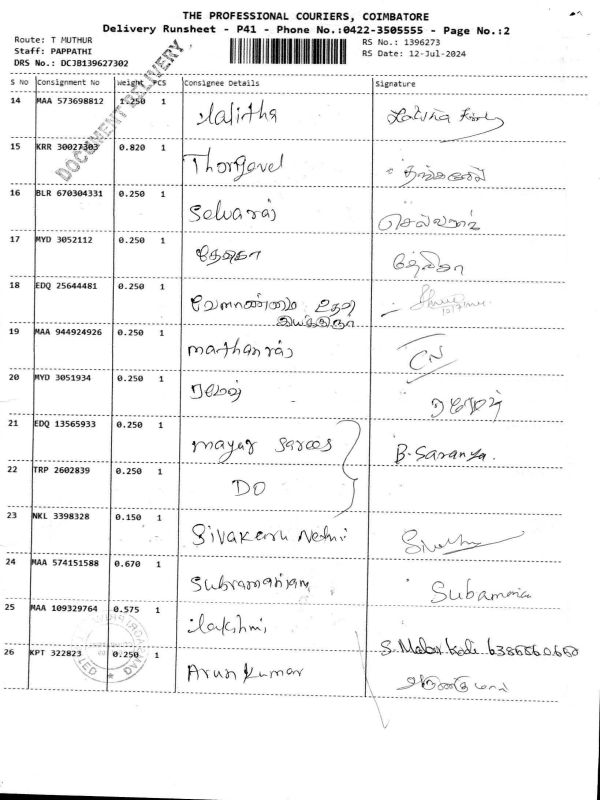 THE PROFESSIONAL COURIERS, COIMBATORE
Delivery Runsheet - P41 - Phone No.:0422-3505555 - Page No.:2
Route: T MUTHUR
RS No.: 1396273
Staff: PAPPATHI
RS Date: 12-Jul-2024
DRS No.: DCJB139627302
DOCUMENT DELIVERY
S No Consignment No Weight PCS Consignee Details Signature
14 MAA 573698812 1.250 1 Lalitha
15 KRR 30027303 0.820 1 Thangavel தங்கவேல்
16 BLR 670304331 0.250 1 Selvaraj செல்வராஜ்
17 MYD 3052112 0.250 1
18 EDQ 25644481 0.250 1 வேளாண்மை உதவி
இயக்குநர்
19 MAA 944924926 0.250 1 mathanraj CN
20 MYD 3051934 0.250 1 ரமேஷ் ரமேஷ்
21 EDQ 13565933 0.250 1 mayur sarees B. Saranya.
22 TRP 2602839 0.250 1 DO
23 NKL 3398328 0.150 1
24 MAA 574151588 0.670 1 Subramaniam
25 MAA 109329764 0.575 1 Lakshmi
S. Malar Kodi 6385560660
26 KPT 322823 0.250 1 Arun Kumar